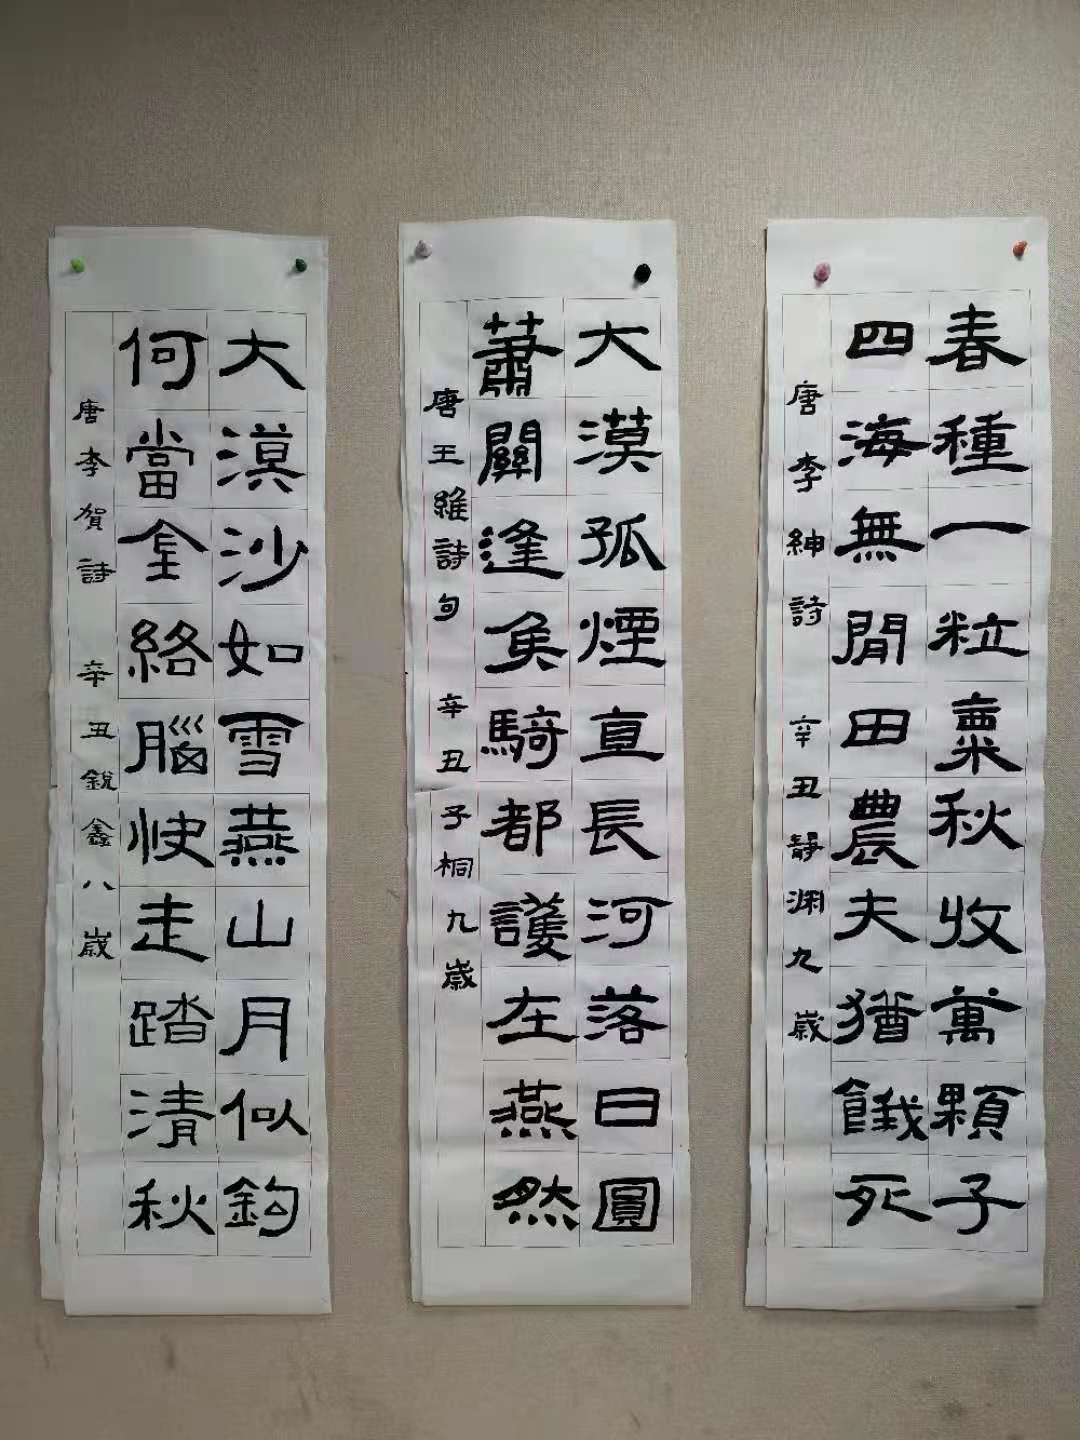 春種一粒粟秋收萬顆子
四海無閒田農夫猶餓死
唐李紳詩 辛丑靜渊九歲
大漠孤煙直長河落日圓
蕭關逢矦騎都護在燕然
唐王維詩句 辛丑子桐九歲
大漠沙如雪燕山月似鈎
何當金絡腦快走踏清秋
唐李賀詩 辛丑銳鑫八歲